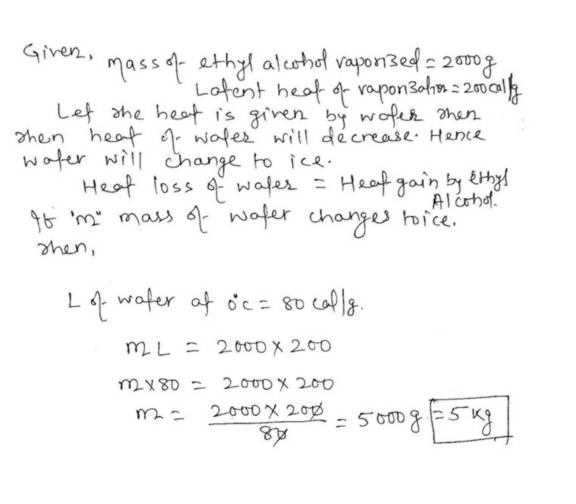 Given, mass of ethyl alcohol vaporized = 2000g
Latent heat of vaporization = 200 cal/g
Let the heat is given by water then
then heat of water will decrease. Hence
water will change to ice.
Heat loss of water = Heat gain by Ethyl
Alcohol.
If "m" mass of water changes to ice.
then,
L of water at 0°C = 80 cal/g.
mL = 2000 × 200
m × 80 = 2000 × 200
m = 2000 × 200 / 80 = 5000g = 5 kg